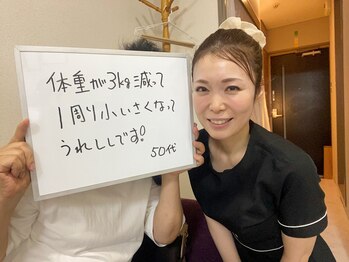 体重が3kg減って
1周り小いさくなって
うれししです!
50代